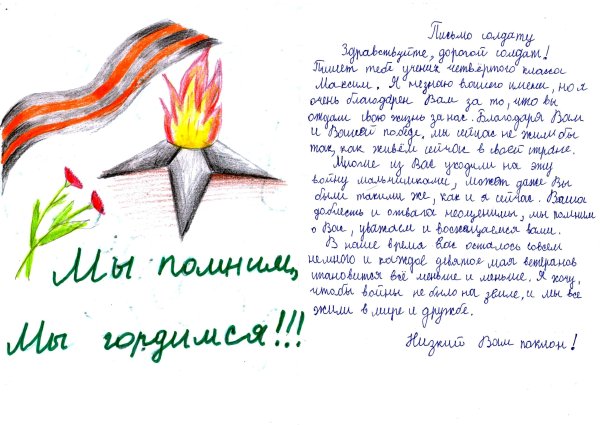 Мы помним,
Мы гордимся!!!
Письмо солдату
Здравствуйте, дорогой солдат!
Пишет тебе ученик четвёртого класса
Максим. Я незнаю вашего имени, но я
очень благодарен Вам за то, что вы
отдали свою жизнь за нас. Благодаря Вам
и Вашей победе, мы сейчас не жили бы
так, как живём сейчас в своей стране.
Многие из Вас уходили на эту
войну мальчишками, может даже Вы
были такими же, как и я сейчас. Ваша
доблесть и отвага неоценимы, мы помним
о Вас, уважаем и восхищаемся вами.
В наше время Вас осталось совсем
немного и каждое девятое мая ветеранов
становится всё меньше и меньше. Я хочу,
чтобы войны не было на земле, и мы все
жили в мире и дружбе.
Низкий Вам поклон!